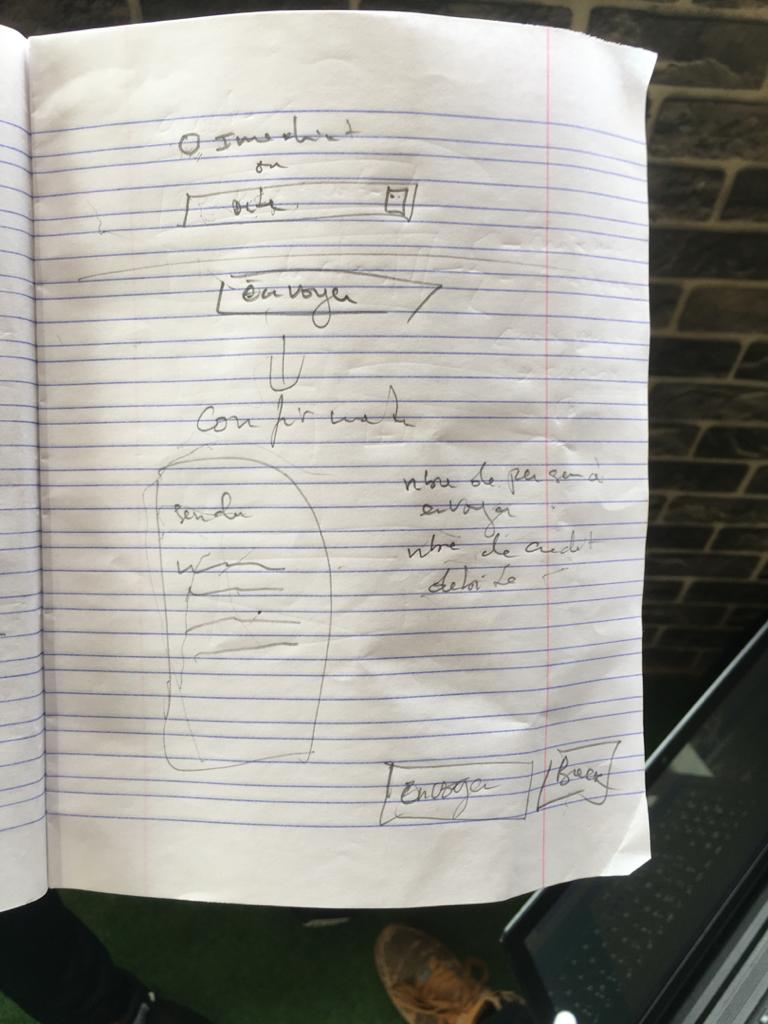 ou
date
envoyer
Confirmat
sender
nbre de pers à
envoyer
nbre de credit
debité
Envoyer
Back